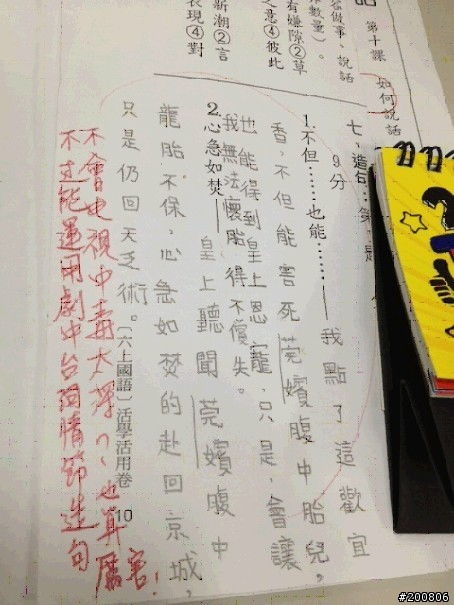 第十課 如何說話
做事、說話
數量）。
有嫌隙②草
之意④彼此
新潮②言
表現④對
七、造句：
9分
1.不但……也能……——我點了這歡宜
香,不但能害死莞嬪腹中胎兒,
也能得到皇上恩寵。只是,會讓
我無法懷胎,得不償失。
2.心急如焚——皇上聽聞莞嬪腹中
龍胎不保,心急如焚的赴回京城,
只是仍回天乏術。
〔六上國語〕活學活用卷 10
不會电視中毒太深ㄇ、
不過能運用劇中台詞情節造句
也算厲害!
#200806